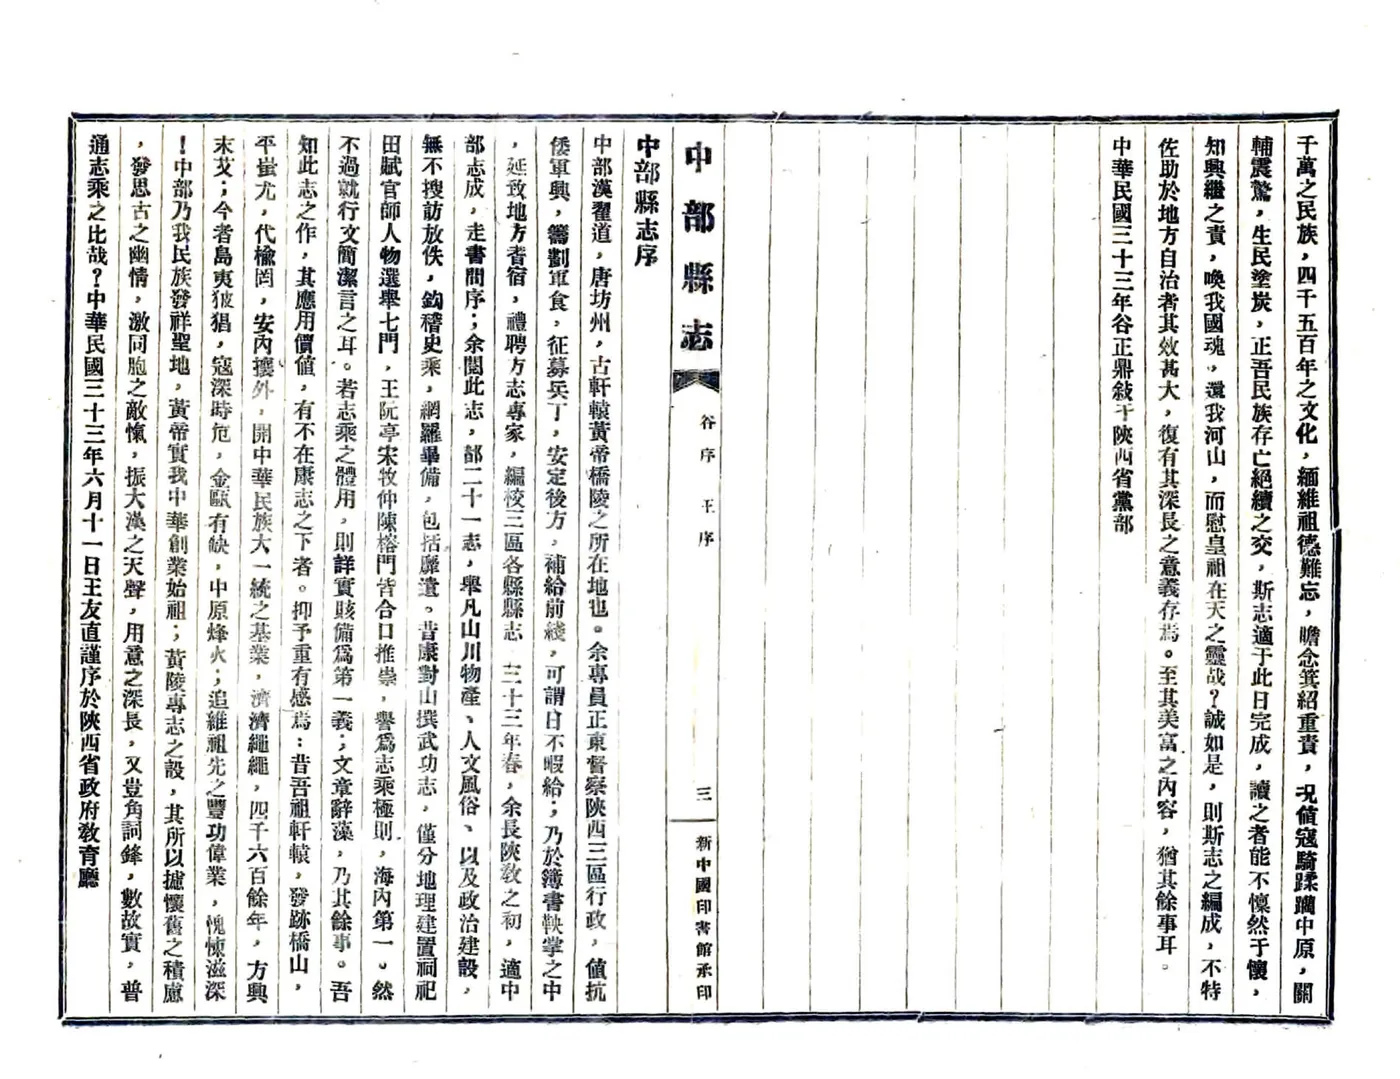 千萬之民族，四千五百年之文化，緬維祖德難忘，瞻念箕紹重責，况値寇騎蹂躪中原，關
輔震驚，生民塗炭，正吾民族存亡絕續之交，斯志適于此日完成，讀之者能不懍然于懷，
知興繼之責，喚我國魂，還我河山，而慰皇祖在天之靈哉？誠如是，則斯志之編成，不特
佐助於地方自治者其效甚大，復有其深長之意義存焉。至其美富之內容，猶其餘事耳。
中華民國三十三年谷正鼎敍于陝西省黨部
中部縣志
谷序 王序
三
新中國印書館承印
中部縣志序
中部漢翟道，唐坊州，古軒轅黃帝橋陵之所在地也。余專員正東督察陝西三區行政，値抗
倭軍興，籌劃軍食，征募兵丁，安定後方，補給前綫，可謂日不暇給；乃於簿書鞅掌之中
，延致地方耆宿，禮聘方志專家，編校三區各縣縣志，三十三年春，余長陝敎之初，適中
部志成，走書問序；余閱此志，都二十一志，舉凡山川物產、人文風俗、以及政治建設，
無不搜訪放佚，鈎稽史乘，網羅畢備，包括靡遺。昔康對山撰武功志，僅分地理建置祠祀
田賦官師人物選舉七門，王阮亭宋牧仲陳榕門皆合口推崇，譽爲志乘極則，海內第一。然
不過就行文簡潔言之耳。若志乘之體用，則詳實賅備爲第一義；文章辭藻，乃其餘事。吾
知此志之作，其應用價値，有不在康志之下者。抑予重有感焉：昔吾祖軒轅，發跡橋山，
平蚩尤，代楡罔，安內攘外，開中華民族大一統之基業，濟濟繩繩，四千六百餘年，方興
末艾；今者島夷猖猖，寇深時危，金甌有缺，中原烽火；追維祖先之豐功偉業，愧悚滋深
！中部乃我民族發祥聖地，黃帝實我中華創業始祖；黃陵專志之設，其所以攄懷舊之積慮
，發思古之幽情，激同胞之敵愾，振大漢之天聲，用意之深長，又豈角詞鋒，數故實，普
通志乘之比哉？中華民國三十三年六月十一日王友直謹序於陝西省政府敎育廳